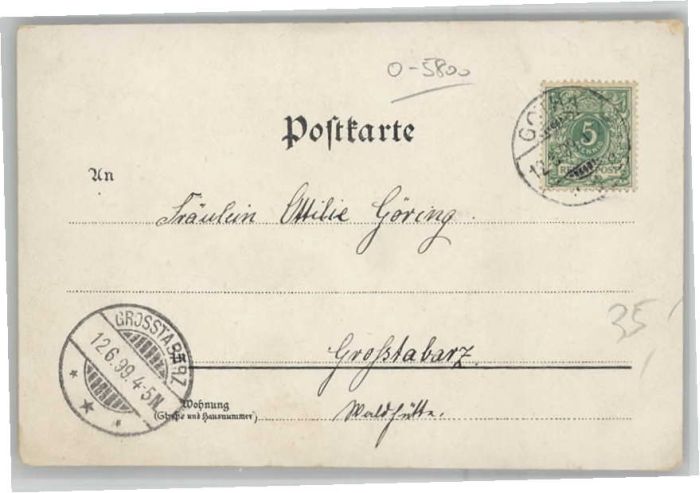 0-5800
Postkarte
GOTHA
5
12.6.
REICHSPOST
An
Fräulein Ottilie Göring.
35
GROSSTABARZ
12.6.99.4-5N.
Großtabarz.
Wohnung
(Straße und Hausnummer)
Waldhütte.